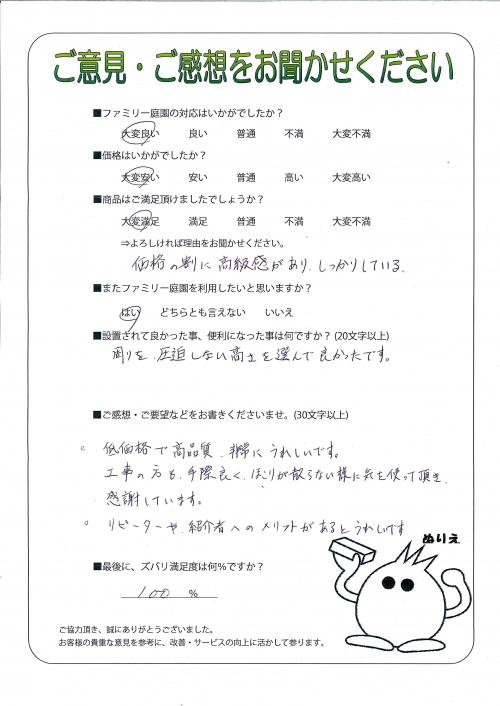 ご意見・ご感想をお聞かせください
■ファミリー庭園の対応はいかがでしたか？
大変良い 良い 普通 不満 大変不満
■価格はいかがでしたか？
大変安い 安い 普通 高い 大変高い
■商品はご満足頂けましたでしょうか？
大変満足 満足 普通 不満 大変不満
⇒よろしければ理由をお聞かせください。
価格の割に高級感があり、しっかりしている。
■またファミリー庭園を利用したいと思いますか？
はい どちらとも言えない いいえ
■設置されて良かった事、便利になった事は何ですか？(20文字以上)
周りを、圧迫しない高さを選んで良かったです。
■ご感想・ご要望などをお書きくださいませ。(30文字以上)
。低価格で高品質、非常にうれしいです。
工事の方も、手際良く、ほこりが散らない様に気を使って頂き、
感謝しています。
。リピーターや、紹介者へのメリットがあるとうれしいです
ぬりえ
■最後に、ズバリ満足度は何％ですか？
100 %
ご協力頂き、誠にありがとうございました。
お客様の貴重な意見を参考に、改善・サービスの向上に活かして参ります。